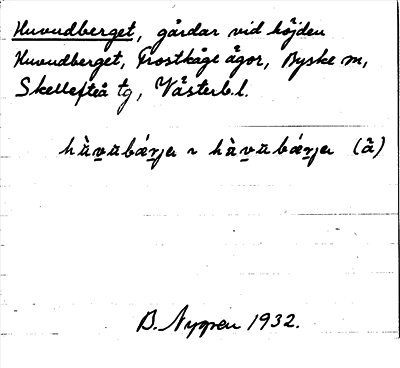 Huvudberget, gårdar vid höjden
Huvudberget, Frostkåge ågor, Byske sn,
Skellefteå tg, Västerb.l.
hùvubǽrjɐ ~ hàvubǽrjɐ (ā)
B. Nygren 1932.